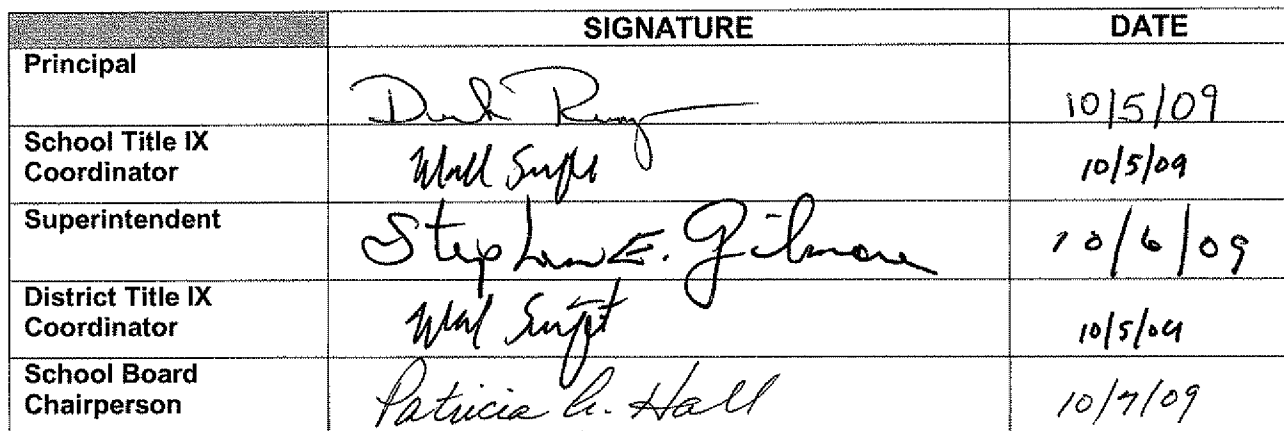 SIGNATURE DATE
Principal 10/5/09
School Title IX
Coordinator 10/5/09
Superintendent Stephen E. Gilmore 10/6/09
District Title IX
Coordinator 10/5/09
School Board
Chairperson Patricia A. Hall 10/7/09